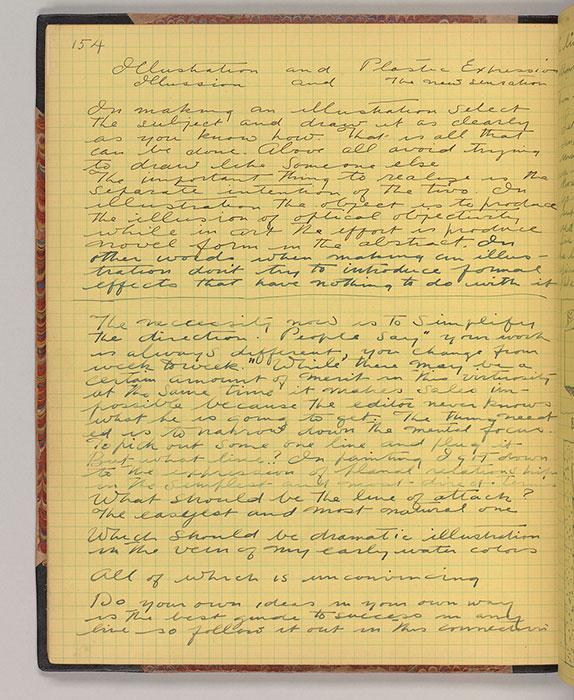 154
Illustration and Plastic Expression
Illusion and the new sensation
In making an illustration select
the subject and draw it as clearly
as you know how. That is all that
can be done. Above all avoid trying
to draw like someone else
The important thing to realize is the
separate intention of the two. In
illustration the object is to produce
the illusion of optical objectivity
while in art the effort is produce
novel form in the abstract In
other words when making an illus-
tration don't try to introduce formal
effects that have nothing to do with it
The necessity now is to simplify
the direction. People say "your work
is always different, you change from
week to week" While there may be a
certain amount of merit in this virtuosity
at the same time it makes sales im-
possible because the editor never knows
what he is going to get. The thing need
ed is to narrow down the mental focus.
To pick out some one line and plug it
But what line? In painting I got down
to the expression of planar relationships
in the simplest and most direct terms
What should be the line of attack?
The easyest and most natural one
Which should be dramatic illustration
in the vein of my early water colors
All of which is unconvincing
Do your own ideas in your own way
is the best guide to success in any
line so follow it out in this connection